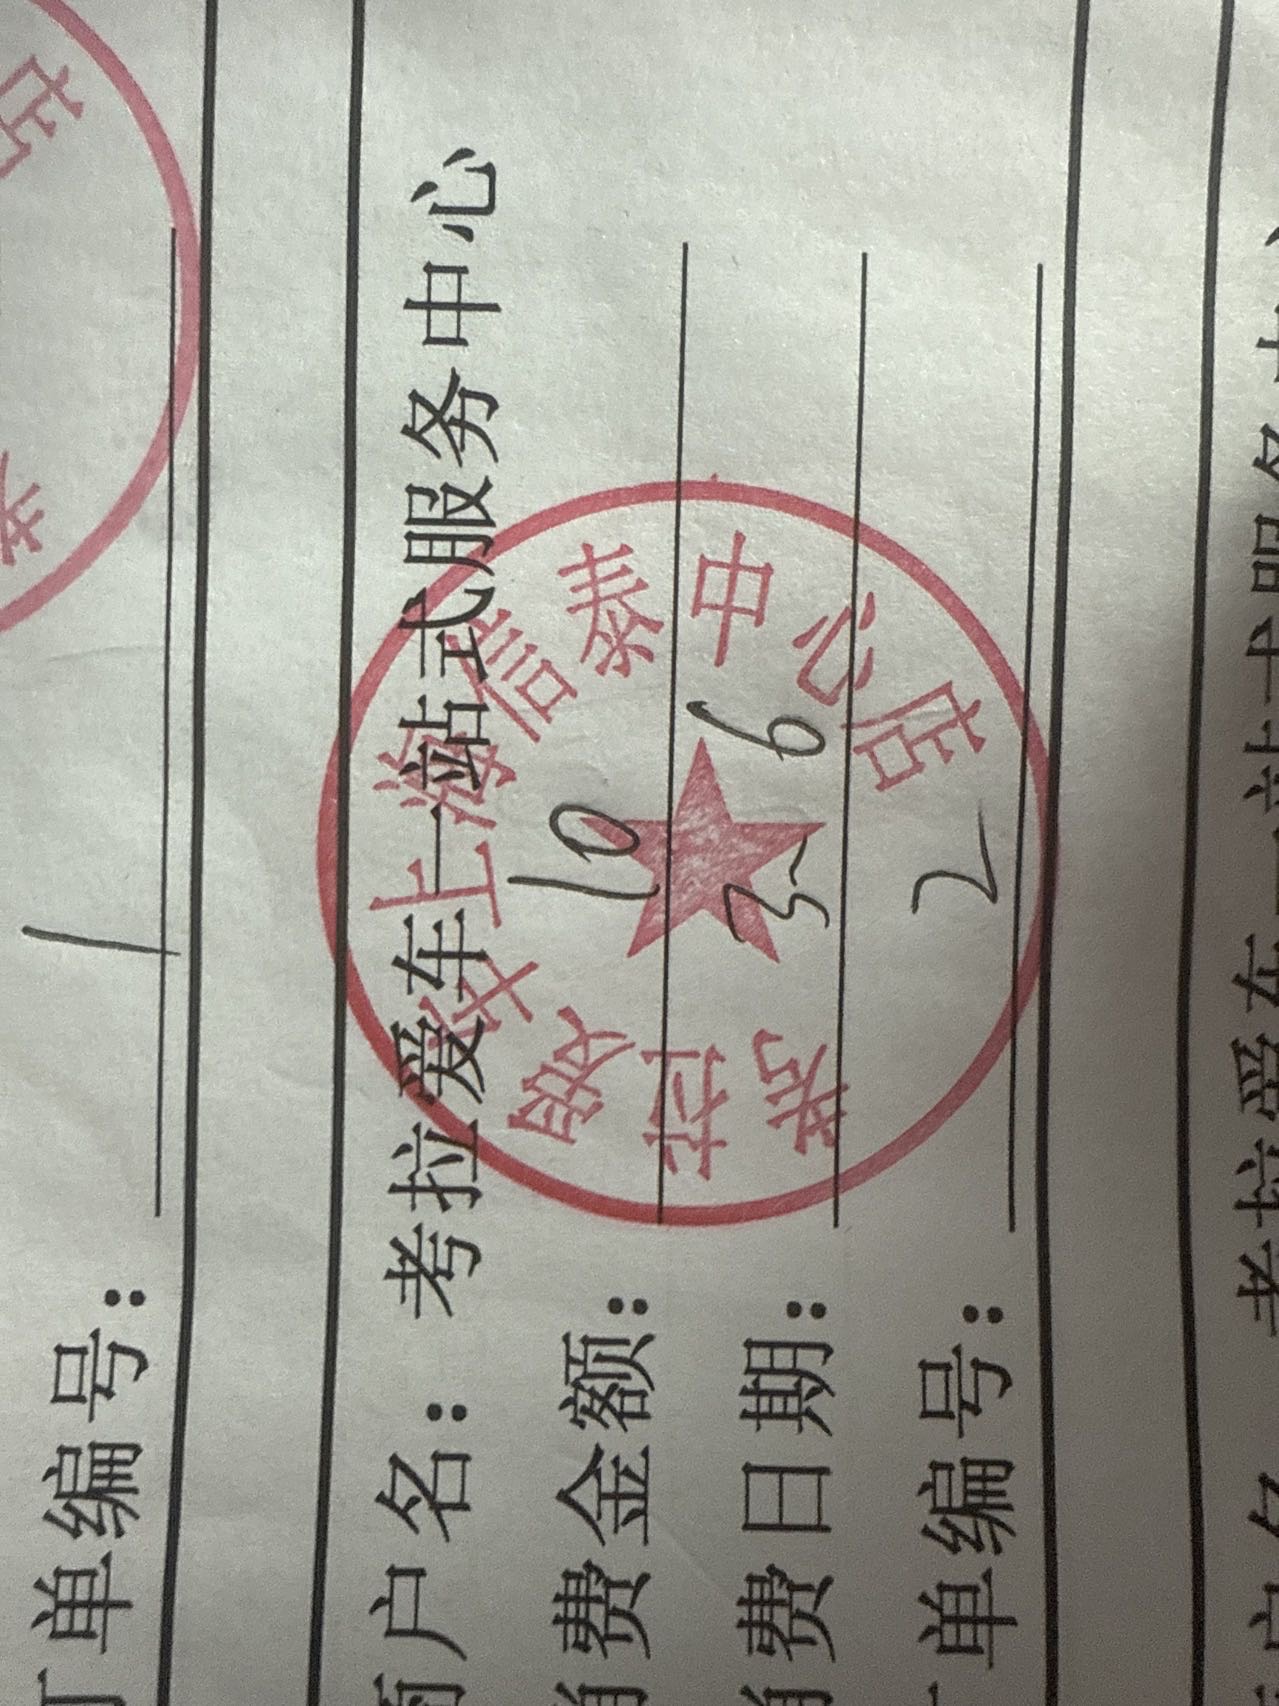 单编号: 1
店
考
商户名: 考拉爱车一站式服务中心
消费金额: 10
消费日期: 3 6
订单编号: 2
考拉爱车上海信泰中心店
考拉爱车一站式服务中